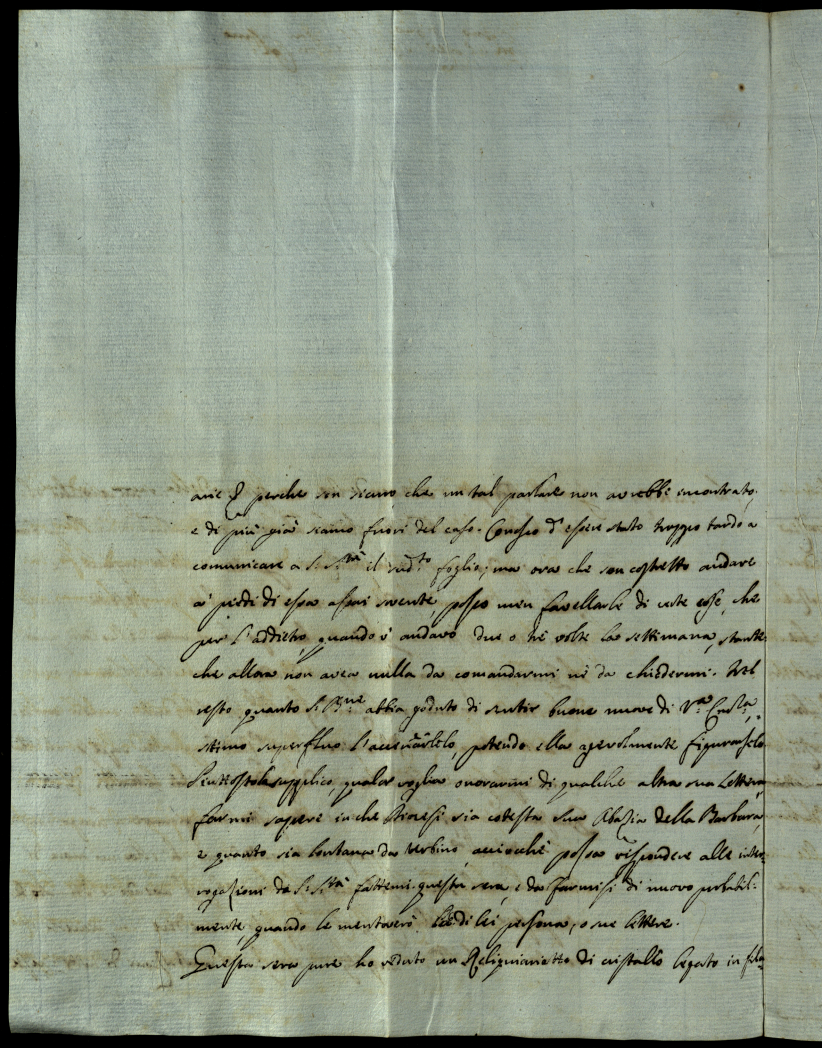 perche son sicuro che un tal parlare non avrebbe incontrato,
e di più già siamo fuori del caso. Conosco d'essere stato troppo tardo a
comunicare a S. S.tà il sud.to foglio; ma ora che son costretto andare
a' piedi di essa assai sovente, posso men favellarle di certe cose, che
per l'addietro, quando v'andavo due o trè volte la settimana, stante
che allora non avea nulla da comandarmi nè da chiedermi. Nel
resto quanto S. B.ne abbia goduto di sentir buone nuove di V.ra
stimo superfluo l'accennarlelo, potendo ella agevolmente figurarselo
Piuttosto la supplico, qualor voglia onorarmi di qualche altra sua Lettera,
farmi sapere in che Diocesi sia cotesta sua Abazia della Barbara,
e quanto sia lontana da Urbino, acciocchè possa rispondere alle inter-
rogazioni da S. S.tà fattemi questa sera, e da farmisi di nuovo probabil-
mente, quando le mentoverò la di lei persona, o sue lettere.
Questa sera pure ho veduto un Reliquiarietto di cristallo legato in